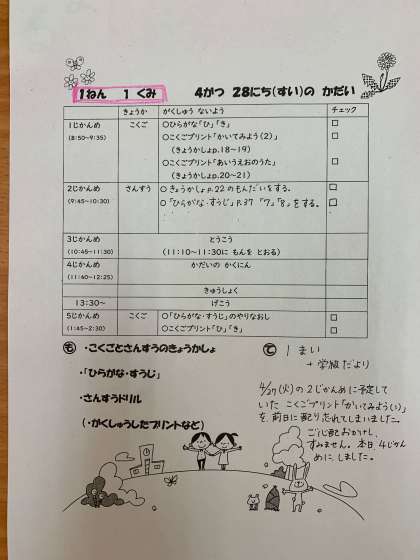 1ねん 1 くみ 4がつ 28にち(すい)の かだい
きょうか がくしゅう ないよう チェック
1じかんめ こくご ○ひらがな「ひ」「き」 □
(8:50~9:35) ○こくごプリント「かいてみよう(2)」 □
(きょうかしょp.18~19)
○こくごプリント「あいうえおのうた」 □
(きょうかしょp.20~21)
2じかんめ さんすう ○きょうかしょp.22のもんだいをする。 □
(9:45~10:30) ○「ひらがな・すうじ」p.37 「7」「8」をする。 □
3じかんめ とうこう
(10:45~11:30) (11:10~11:30に もんを とおる)
4じかんめ かだいの かくにん
(11:40~12:25)
きゅうしょく
13:30~ げこう
5じかんめ こくご ○「ひらがな・すうじ」のやりなおし □
(1:45~2:30) ○こくごプリント「ひ」「き」 □
も ・こくごとさんすうのきょうかしょ
・「ひらがな・すうじ」
・さんすうドリル
(・がくしゅうしたプリントなど)
て 1まい
+学級だより
4/27(火)の2じかんめに予定して
いた こくごプリント「かいてみよう(1)」
を前日に配り忘れてしまいました。
ご心配おかけし、
すみません。本日、4じかん
めに、しました。